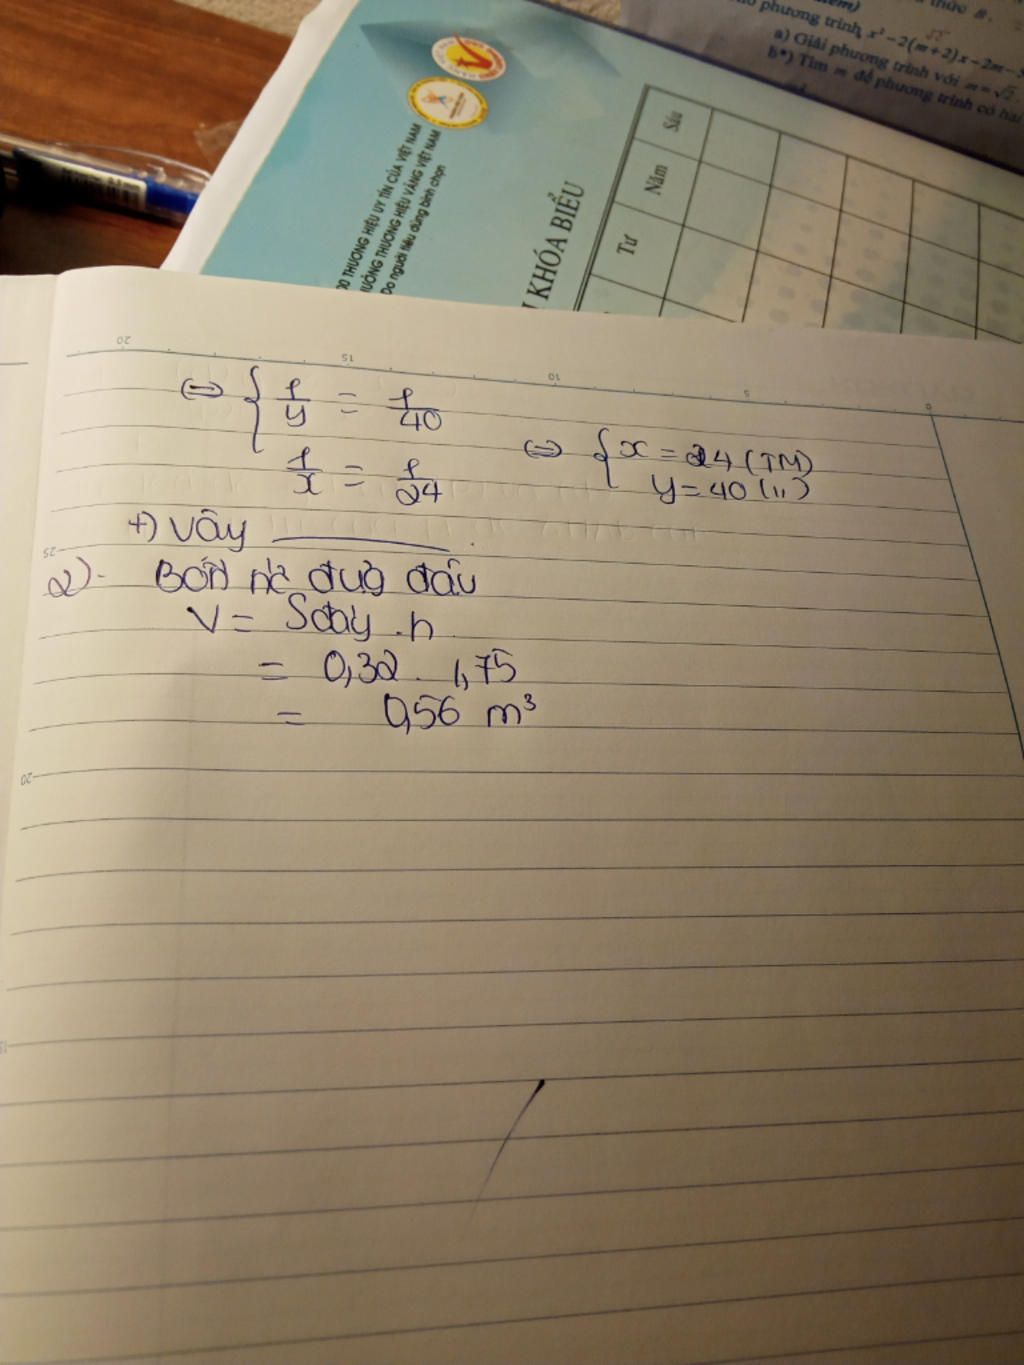 thức B.
phương trình x² - 2(m+2)x - 2m - 5
√2
a) Giải phương trình với m = √2.
b*) Tìm m để phương trình có hai
00 THƯƠNG HIỆU UY TÍN CỦA VIỆT NAM
THƯƠNG HIỆU VÀNG VIỆT NAM
Do người tiêu dùng bình chọn
KHÓA BIỂU
Sáu
Năm
Tư
20 15 10 5 0
⇔ { 1/y = 1/40
1/x = 1/24
⇔ { x = 24 (TM)
y = 40 (")
+) Vậy
25
2) Bồn nc đựg đầy
V = Sđáy . h
= 0,32 . 1,75
= 0,56 m³
20